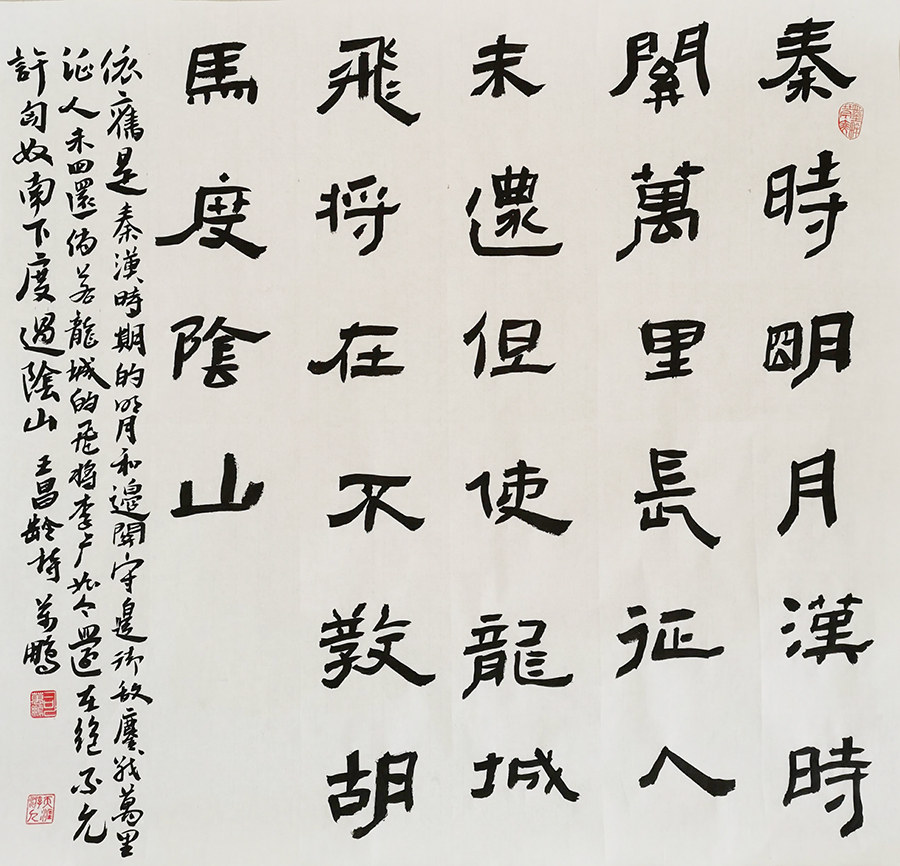 秦時明月漢時
關萬里長征人
未還但使龍城
飛将在不敎胡
馬度陰山
依舊是秦漢時期的明月和邊關守邊御敌鏖戰萬里
征人未回還倘若龍城的飛將李广如今還在絕不允
許匈奴南下度過陰山 王昌齡詩 萬鵬